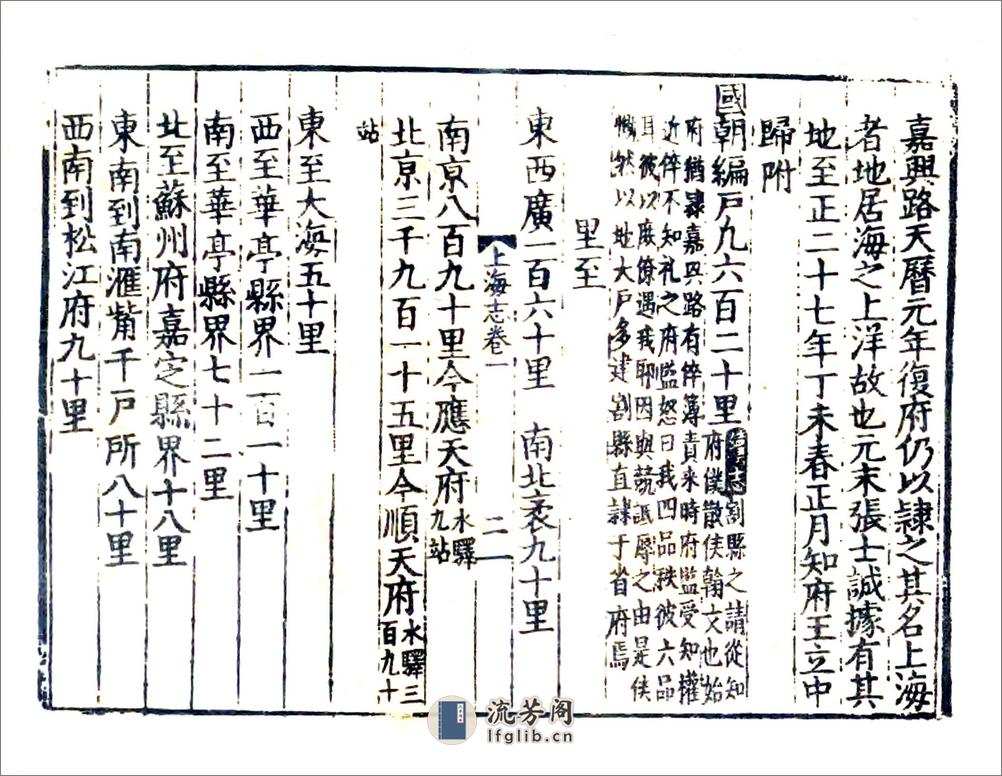 嘉興路天曆元年復府仍以隸之其名上海
者地居海之上洋故也元末張士誠據有其
地至正二十七年丁未春正月知府王立中
歸附
國朝編戶九六百二十里
割縣之請從知
府僕散侯翰文也始
府猶隸嘉興路有倅簿責来時府監受知權
近倅不知礼之府監怒曰我四品秩彼六品
耳彼以庶僚遇我耶因與競詆辱之由是侯
慨然以地大戶多建割縣直隸于省府焉
里至
東西廣一百六十里 南北袤九十里
上海志卷一
二
南京八百九十里今應天府水驛
九站
北京三千九百一十五里今順天府水驛三
百九十
站
東至大海五十里
西至華亭縣界一百一十里
南至華亭縣界七十二里
北至蘇州府嘉定縣界十八里
東南到南滙觜千戶所八十里
西南到松江府九十里
流芳阁
lfglib.cn